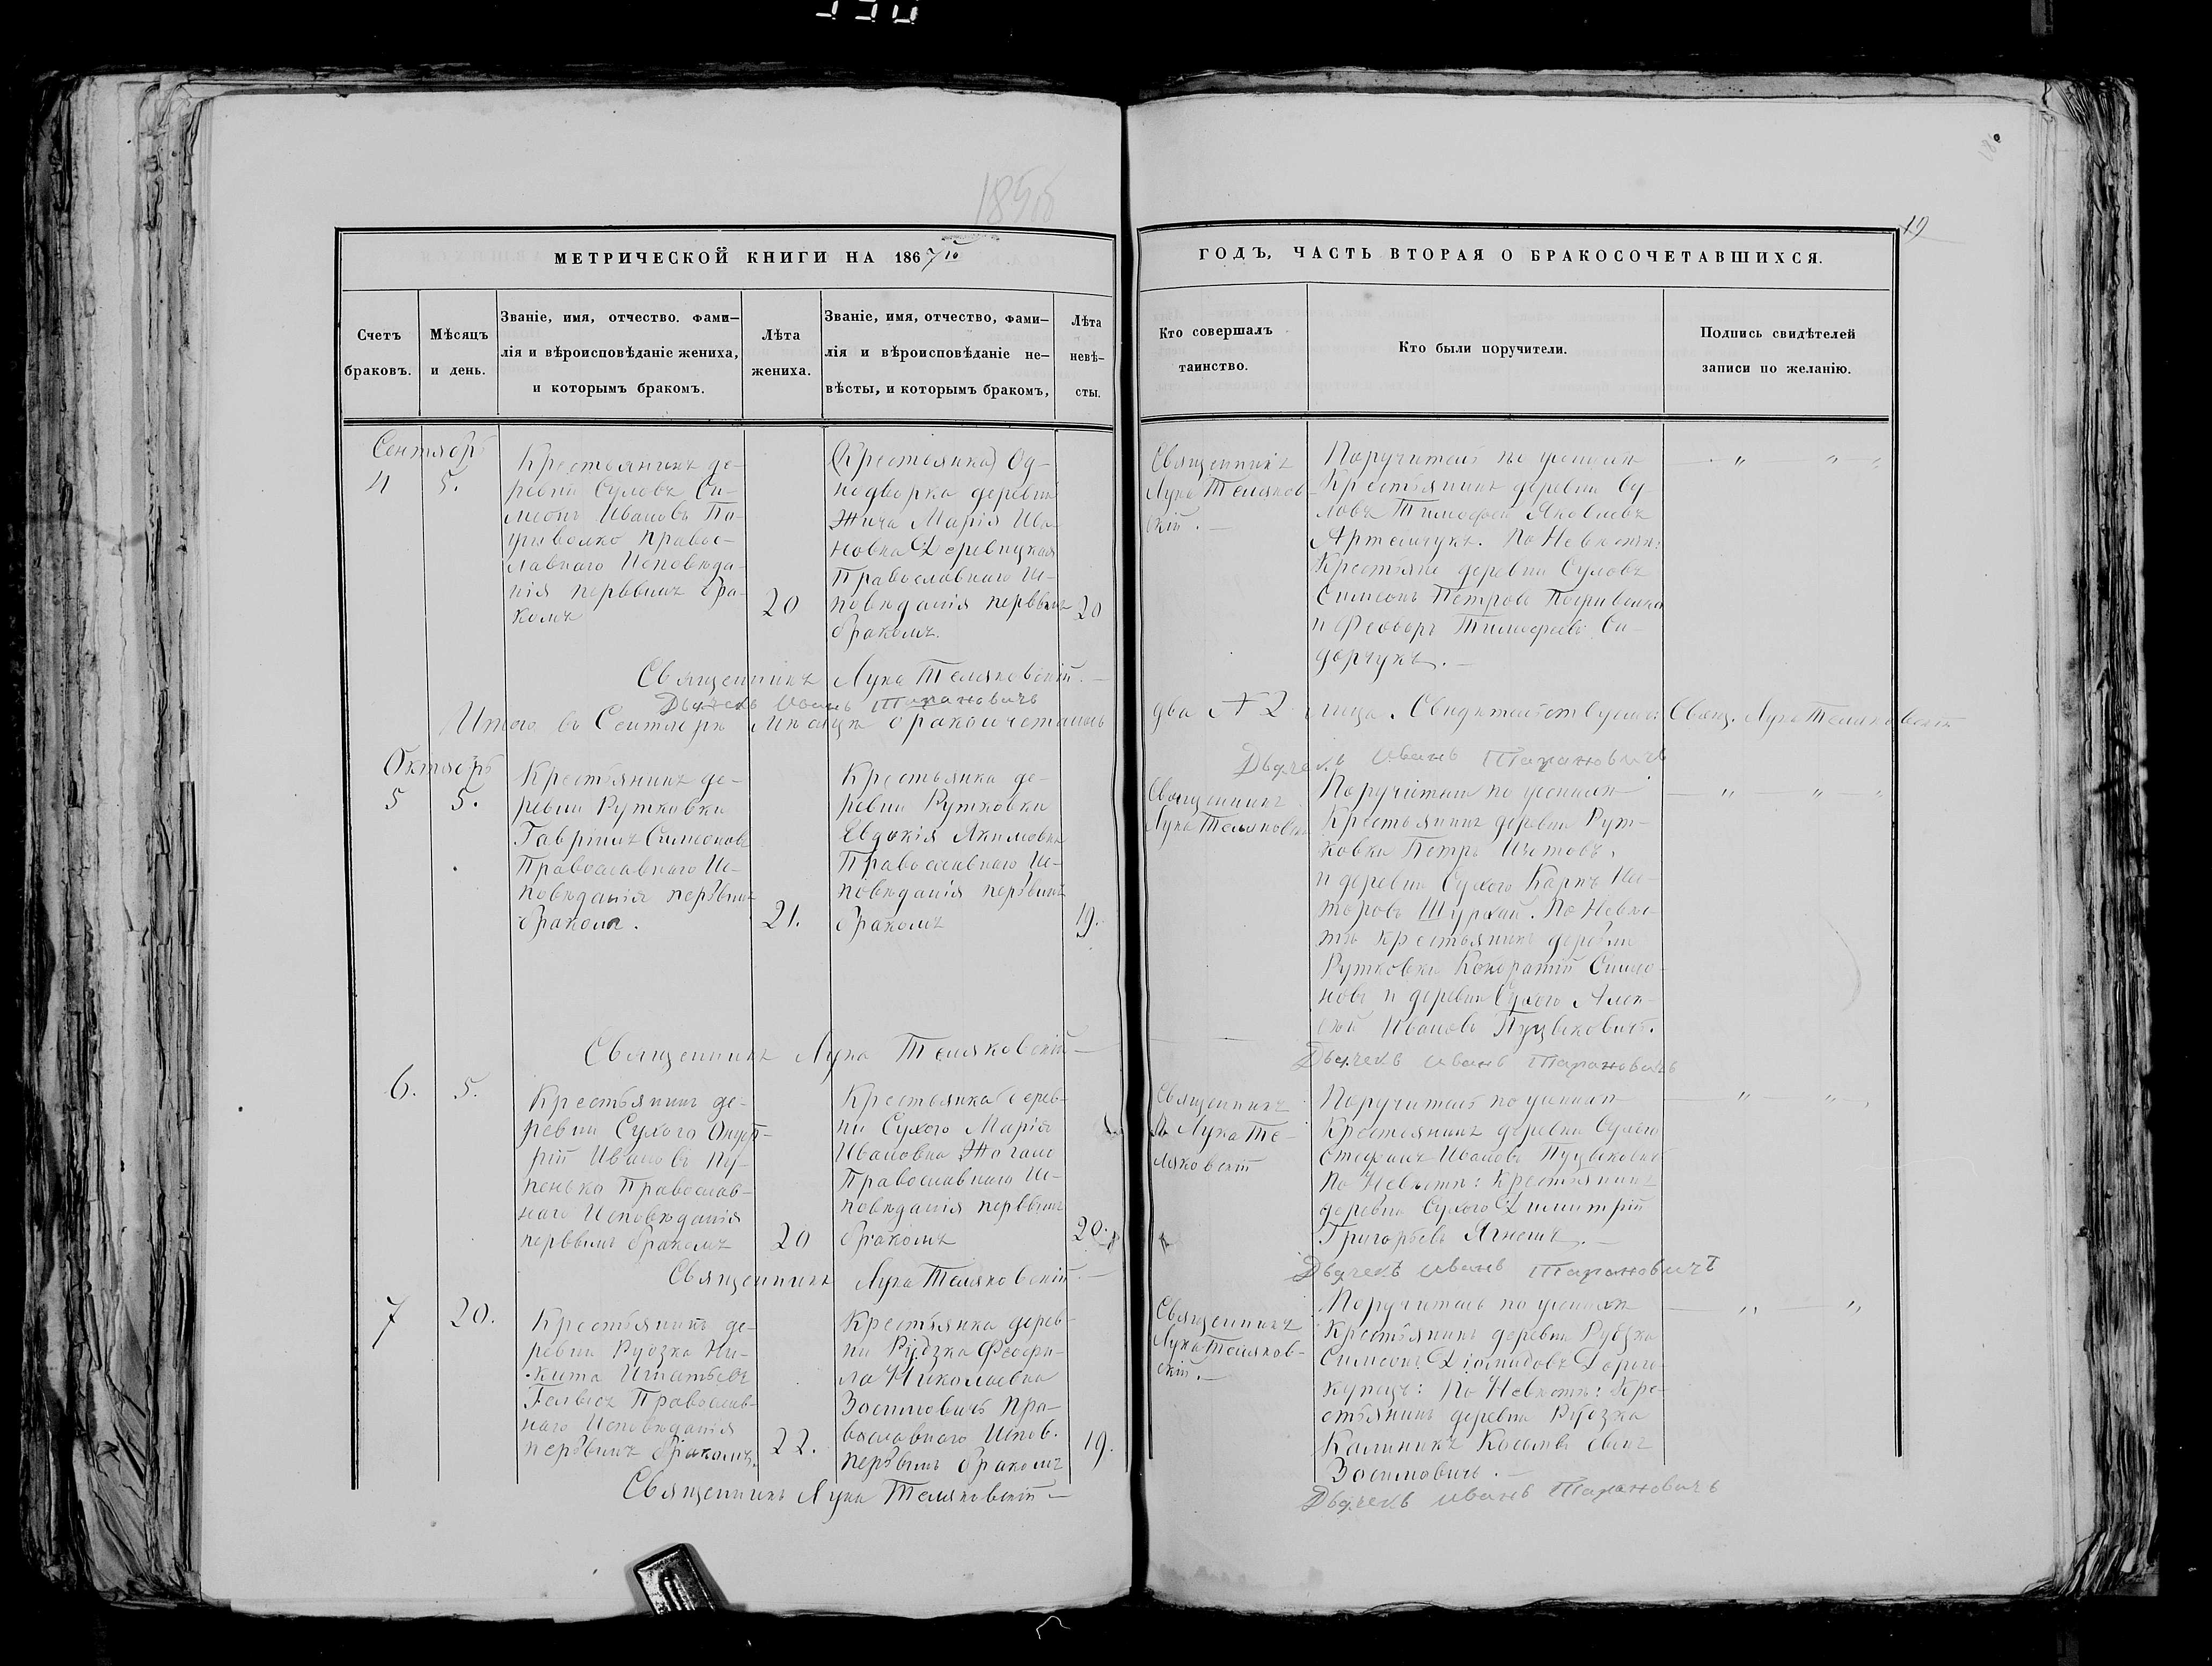 1856
19
МЕТРИЧЕСКОЙ КНИГИ НА 1867 го
ГОДЪ, ЧАСТЬ ВТОРАЯ О БРАКОСОЧЕТАВШИХСЯ.
Счетъ
браковъ.
Мѣсяцъ
и день.
Званіе, имя, отчество. фами-
лія и вѣроисповѣданіе жениха,
и которымъ бракомъ.
Лѣта
жениха.
Званіе, имя, отчество, фами-
лія и вѣроисповѣданіе не-
вѣсты, и которымъ бракомъ,
Лѣта
невѣ-
сты.
Кто совершалъ
таинство.
Кто были поручители.
Подпись свидѣтелей
записи по желанію.
Сентябрь
4
5.
Крестьянинъ де-
ревни Суловъ Си-
меонъ Ивановъ
православнаго Исповѣда-
нія первымъ бра-
комъ
20
(Крестьянка) Од-
нодворка деревни
Жича Марія Ива-
новна Деревицкая
Православнаго Ис-
повѣданія первымъ
бракомъ.
20
Священникъ
Лука Теляков-
скій.
Поручители по женихѣ
Крестьянинъ деревни Су-
ловъ Тимофей Яковлевъ
Артемчукъ. По Невѣстѣ:
Крестьяне деревни Суловъ
Симеонъ Петровъ
и Феодоръ Тимофеевъ Си-
дорчукъ.
Священникъ Лука Теляковскій.
Дьячекъ Иванъ Тарановичъ
Итого въ Сентябрѣ мѣсяцѣ бракосочеталось
два № 2 лица. Свидѣтельствуемъ: Свящ. Лука Теляковскій
Дьячекъ Иванъ Тарановичъ
Октябрь
5
5.
Крестьянинъ де-
ревни Рутковки
Гавріилъ Симеоновъ
Православнаго Ис-
повѣданія первымъ
бракомъ.
21.
Крестьянка де-
ревни Рутковки
Евдокія Якимовна
Православнаго Ис-
повѣданія первымъ
бракомъ
19.
Священникъ
Лука Теляковскій
Поручители по женихѣ
Крестьянинъ деревни Рут-
ковки Петръ Изотовъ,
и деревни Сухого Карпъ
Шурхай. По Невѣс-
тѣ крестьянинъ деревни
Рутковки Кондратій Симео-
новъ и деревни Сухого Алек-
сѣй Ивановъ Пуцыковичъ.
Священникъ Лука Теляковскій
Дьячекъ Иванъ Тарановичъ
6.
5.
Крестьянинъ де-
ревни Сухого Онуф-
рій Ивановъ Пу-
пенько Православ-
наго Исповѣданія
первымъ бракомъ
20
Крестьянка дерев-
ни Сухого Марія
Ивановна
Православнаго Ис-
повѣданія первымъ
бракомъ
20.
Священникъ
Лука Те-
ляковскій
Поручители по женихѣ
Крестьянинъ деревни Сухого
Стефанъ Ивановъ Пуцыковичъ
По Невѣстѣ: Крестьянинъ
деревни Сухого Димитрій
Григорьевъ Ягнешъ.
Священникъ Лука Теляковскій.
Дьячекъ Иванъ Тарановичъ
7
20.
Крестьянинъ де-
ревни Рубзка Ни-
кита Игнатьевъ
Православ-
наго Исповѣданія
первымъ бракомъ.
22.
Крестьянка дерев-
ни Рубзка Феофи-
ла Николаевна
Зосимовичъ пра-
вославнаго Испов.
первымъ бракомъ
19.
Священникъ
Лука Теляков-
скій.
Поручитель по женихѣ
Крестьянинъ деревни Рубзка
Симеонъ Діомидовъ Дорого-
купецъ: По Невѣстѣ: Кре-
стьянинъ деревни Рубзка
Калиникъ
Зосимовичъ.
Священникъ Лука Теляковскій
Дьячекъ Иванъ Тарановичъ